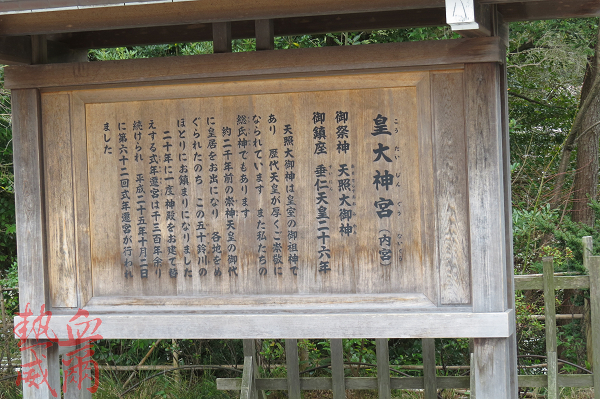 皇大神宮（内宮）
こうたいじんぐう ないくう
御祭神 天照大御神
御鎮座 垂仁天皇二十六年
天照大御神は皇室の御祖神で
あり 歴代天皇が厚くご崇敬に
なられています また私たちの
総氏神でもあります
約二千年前の崇神天皇の御代
に皇居をお出になり 各地をめ
ぐられたのち この五十鈴川の
ほとりにお鎮まりになりました
二十年に一度 神殿をお建て替
えする式年遷宮は千三百年余り
続けられ 平成二十五年十月二日
に第六十二回式年遷宮が行われ
ました
血雨
熱威